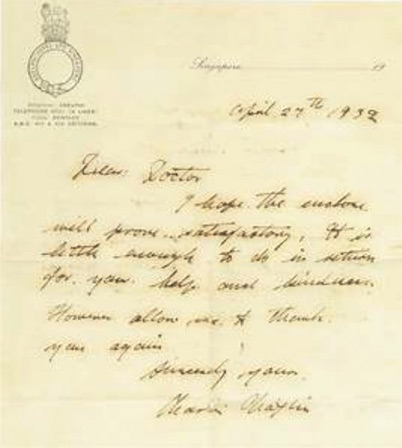 Singapore 19
April 27th 1932
Dear Doctor
I hope the enclose
will prove satisfactory, It is
little enough to do in return
for your help and kindness.
However allow me to thank
you again
Sincerely yours
Charlie Chaplin